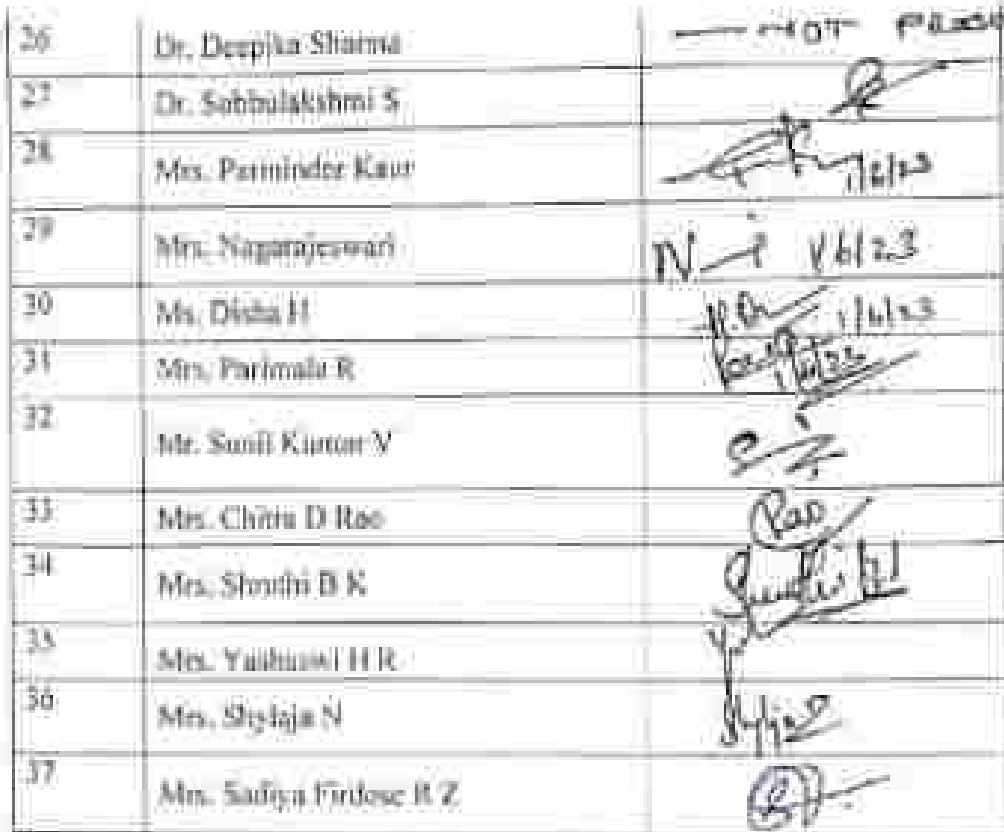 26 Dr. Deepika Sharma — NOT
27 Dr. Sobbulakshmi S
28 Mrs. Parminder Kaur 1/6/23
29 Mrs. Nagarajeswari N 1/6/23
30 Ms. Disha H 1/6/23
31 Mrs. Parimala R
32 Mr. Sunil Kumar V
33 Mrs. Chitra D Rao Rao
34 Mrs. Shruthi B K
35 Mrs. Yashaswi H R
36 Mrs. Shylaja N
37 Mrs. Sadiya Firdose R Z